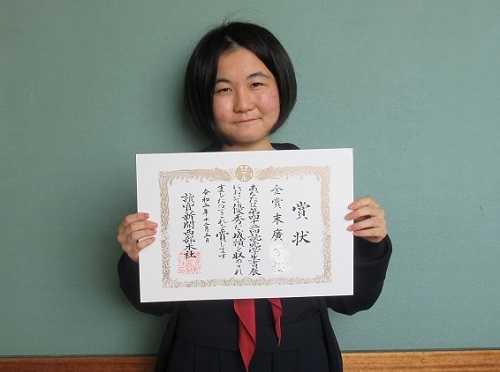 賞状
金賞 末廣
あなたは第四十二回読売学生書展
において優秀な成績を収められ
ましたのでこれを賞します
令和三年十一月三日
読売新聞西部本社